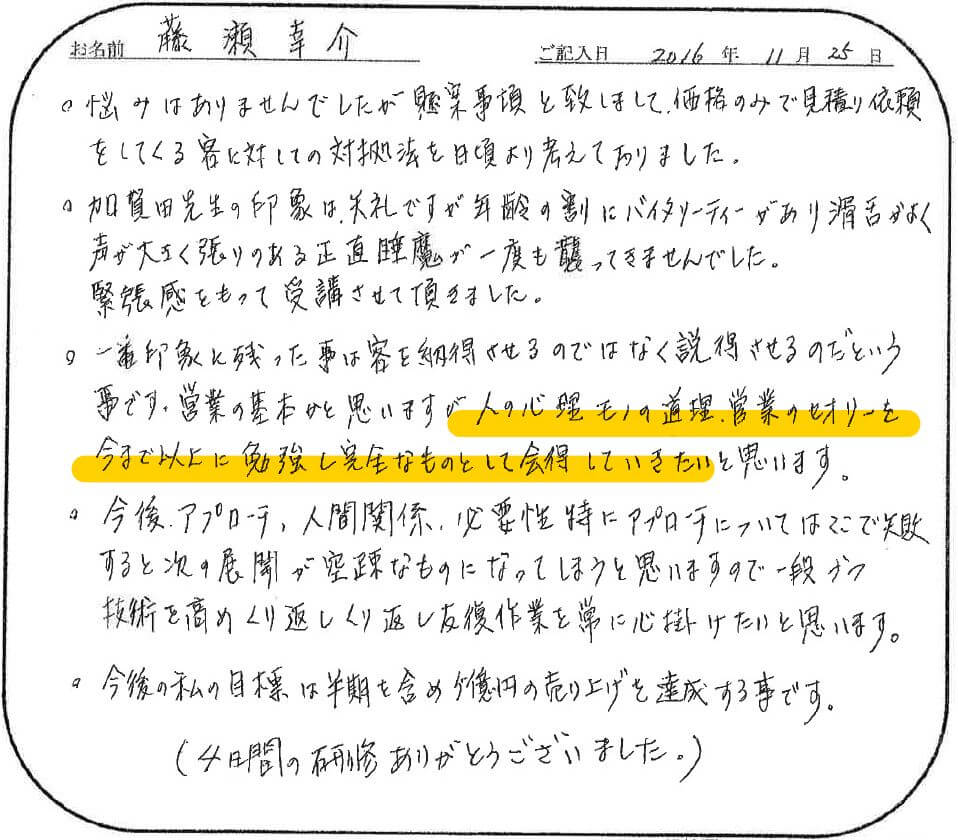 お名前 藤瀬幸介 ご記入日 2016年11月25日
。悩みはありませんでしたが懸案事項と致しまして、価格のみで見積り依頼
をしてくる客に対しての対処法を日頃より考えておりました。
。加賀田先生の印象は、失礼ですが年齢の割にバイタリーティーがあり滑舌がよく
声が大きく張りのある正直睡魔が一度も襲ってきませんでした。
緊張感をもって受講させて頂きました。
。一番印象に残った事は客を納得させるのではなく説得させるのだという
事です。営業の基本かと思いますが人の心理モノの道理、営業のセオリーを
今まで以上に勉強し完全なものとして会得していきたいと思います。
。今後、アプローチ、人間関係、必要性特にアプローチについてはここで失敗
すると次の展開が空疎なものになってしまうと思いますので一段づつ
技術を高めくり返しくり返し反復作業を常に心掛けたいと思います。
。今後の私の目標は半期を含め 億円の売り上げを達成する事です。
(4日間の研修ありがとうございました。)